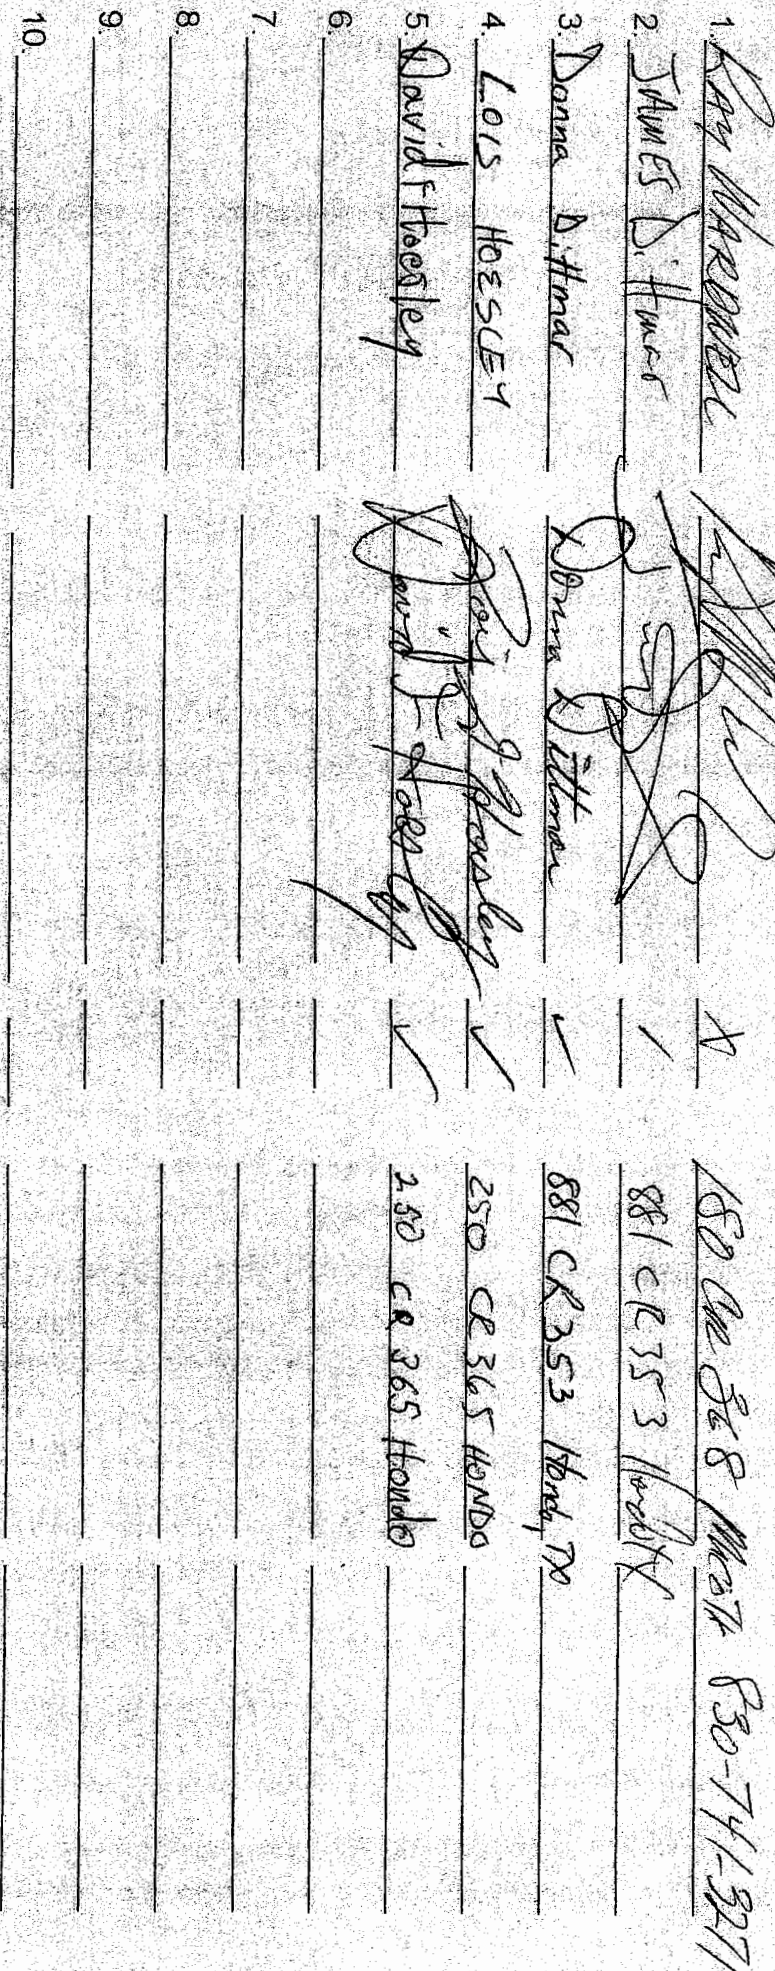 1. RAY WARDNELL X 180 CR 368 830-741-3271
2. JAMES Dittmar / 881 CR 353 Hondo TX
3. Donna Dittmar Donna Dittmar ✓ 881 CR 353 Hondo, TX
4. LOIS HOESLEY Lois Hoesley ✓ 250 CR 365 HONDO
5. David F Hoesley David F Hoesley ✓ 250 CR 365 Hondo
6.
7.
8.
9.
10.